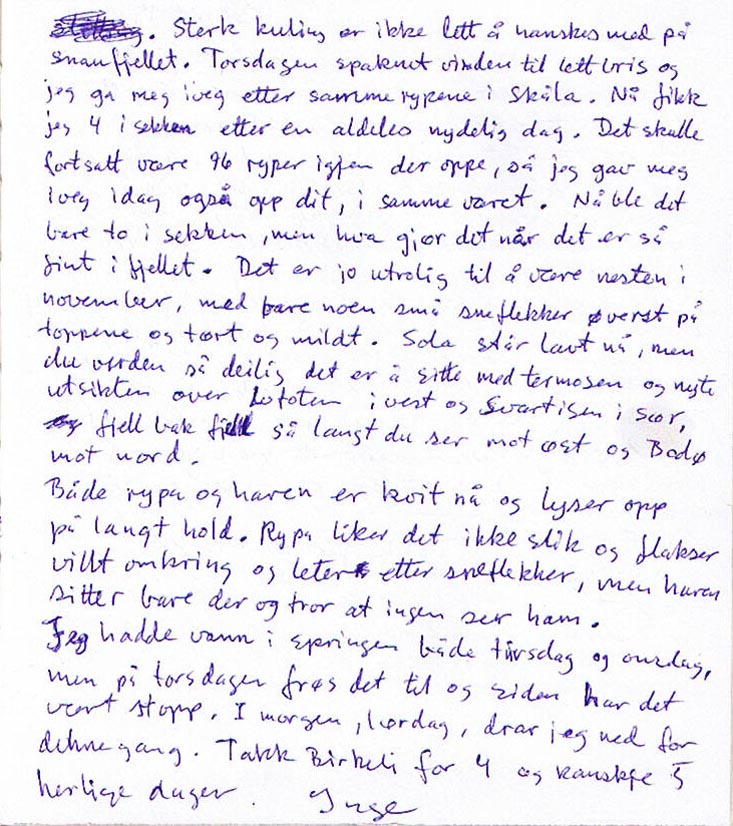 . Sterk kuling er ikke lett å hanskes med på
snaufjellet. Torsdagen spaknet vinden til lett bris og
jeg ga meg iveg etter samme rypene i Skåla. Nå fikk
jeg 4 i sekken etter en aldeles nydelig dag. Det skulle
fortsatt være 96 ryper igjen der oppe, så jeg gav meg
iveg idag også opp dit, i samme været. Nå ble det
bare to i sekken, men hva gjør det når det er så
fint i fjellet. Det er jo utrolig til å være nesten i
november, med bare noen små sneflekker øverst på
toppene og tørt og mildt. Sola står lavt nå, men
du verden så deilig det er å sitte med termosen og nyte
utsikten over Lofoten i vest og Svartisen i sør,
fjell bak fjell så langt du ser mot øst og Bodø
mot nord.
Både rypa og haren er kvit nå og lyser opp
på langt hold. Rypa liker det ikke slik og flakser
villt omkring og leter etter sneflekker, men haren
sitter bare der og tror at ingen ser ham.
Jeg hadde vann i springen både tirsdag og onsdag,
men på torsdagen frøs det til og siden har det
vært stopp. I morgen, lørdag, drar jeg ned for
denne gang. Takk Birkeli for 4 og kanskje 5
herlige dager. Inge